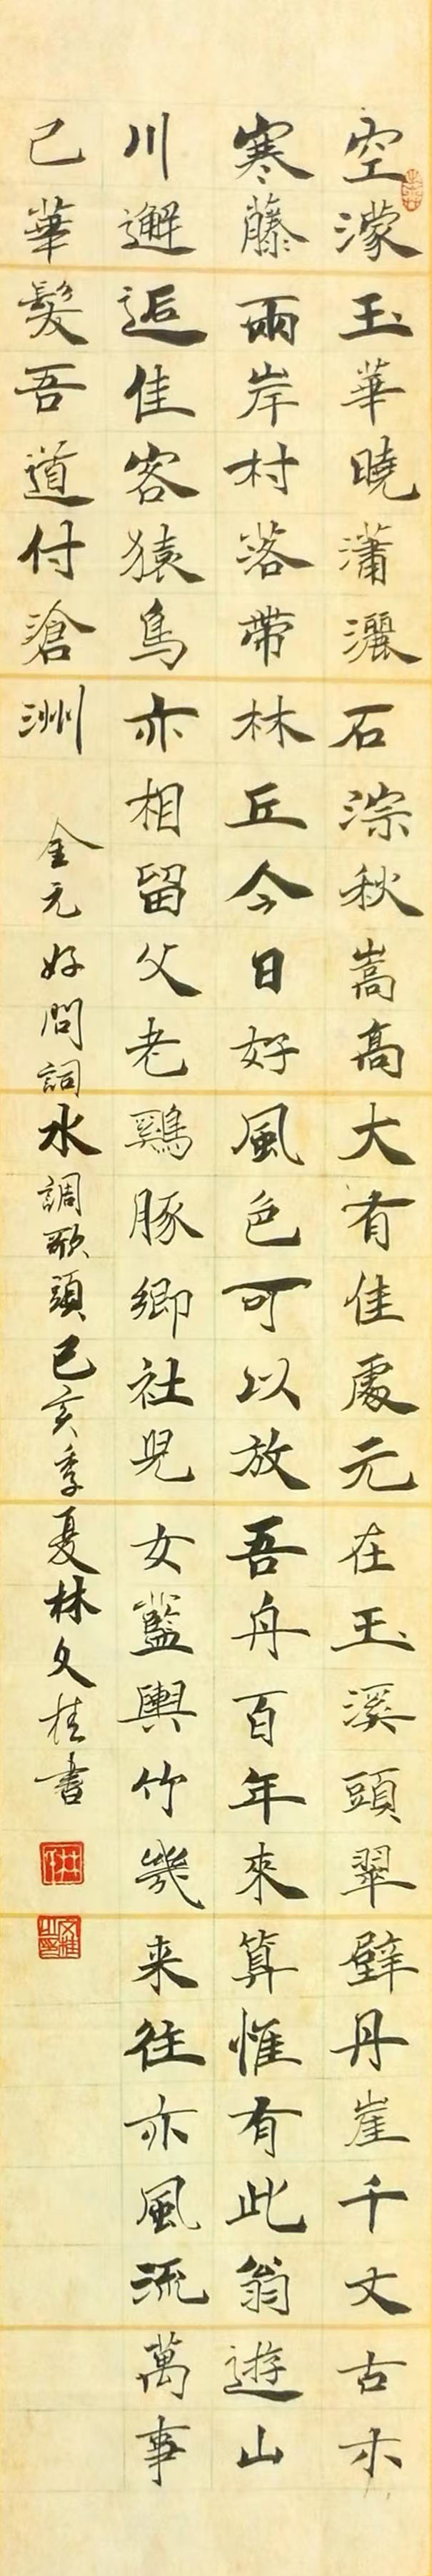 空濛玉華曉瀟灑石淙秋嵩高大有佳處元在玉溪頭翠壁丹崖千丈古木
寒藤兩岸村落帶林丘今日好風色可以放吾舟百年來算惟有此翁遊山
川邂逅佳客猿鳥亦相留父老鷄豚鄉社兒女藍輿竹幾来往亦風流萬事
已華髮吾道付滄洲 金元好問詞水調歌頭己亥季夏林文桂書